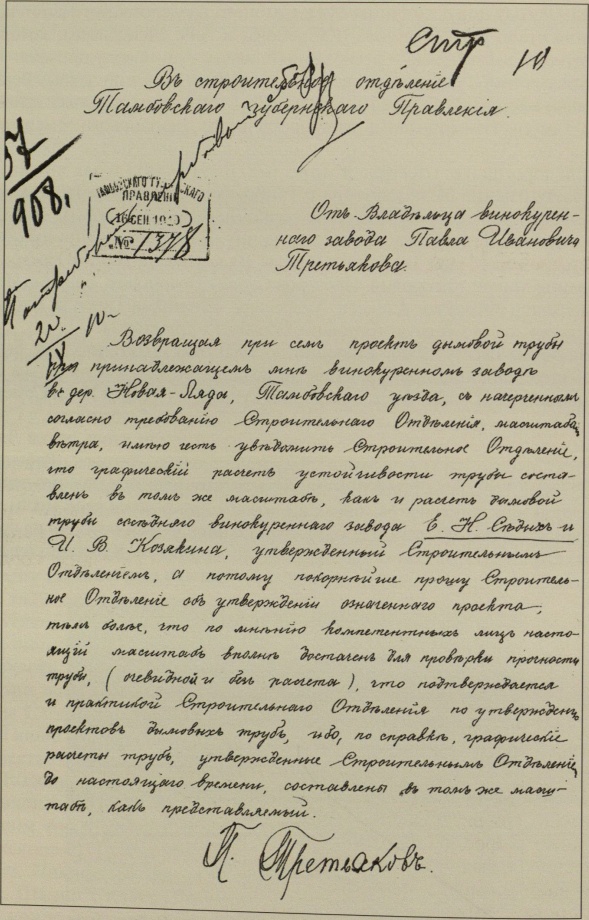 Стр 10
Въ строительное отдѣленіе
Тамбовскаго Губернскаго Правленія.
57
908.
ТАМБОВСКАГО ГУБЕРНСКАГО
ПРАВЛЕНІЯ
16 СЕН 1910
№ 1378
20
IX 10
Отъ Владѣльца винокурен-
наго завода Павла Ивановича
Третьякова.
Возвращая при семъ проектъ дымовой трубы
при принадлежащемъ мнѣ винокуренномъ заводѣ
въ дер. Новая-Ляда, Тамбовскаго уѣзда, съ начерченнымъ
согласно требованію Строительнаго Отдѣленія, масштабомъ
вѣтра, имѣю честь увѣдомить Строительное Отдѣленіе,
что графическій расчетъ устойчивости трубы соста-
вленъ въ томъ же масштабѣ, какъ и расчетъ дымовой
трубы сосѣдняго винокуреннаго завода Е. Н. Сѣдыхъ и
И. В. Козякина, утвержденный Строительнымъ
Отдѣленіемъ, а потому покорнѣйше прошу Строитель-
ное Отдѣленіе объ утвержденіи означеннаго проекта,
тѣмъ болѣе, что по мнѣнію компетентныхъ лицъ насто-
ящій масштабъ вполнѣ достаченъ для провѣрки прочности
трубы, (очевидной и безъ расчета), что подтверждается
и практикой Строительнаго Отдѣленія по утвержденію
проектовъ дымовыхъ трубъ, ибо, по справкѣ, графическіе
расчеты трубъ, утвержденные Строительнымъ Отдѣленіемъ
до настоящаго времени, составлены въ томъ же масш-
табѣ, какъ представляемый.
П. Третьяковъ.